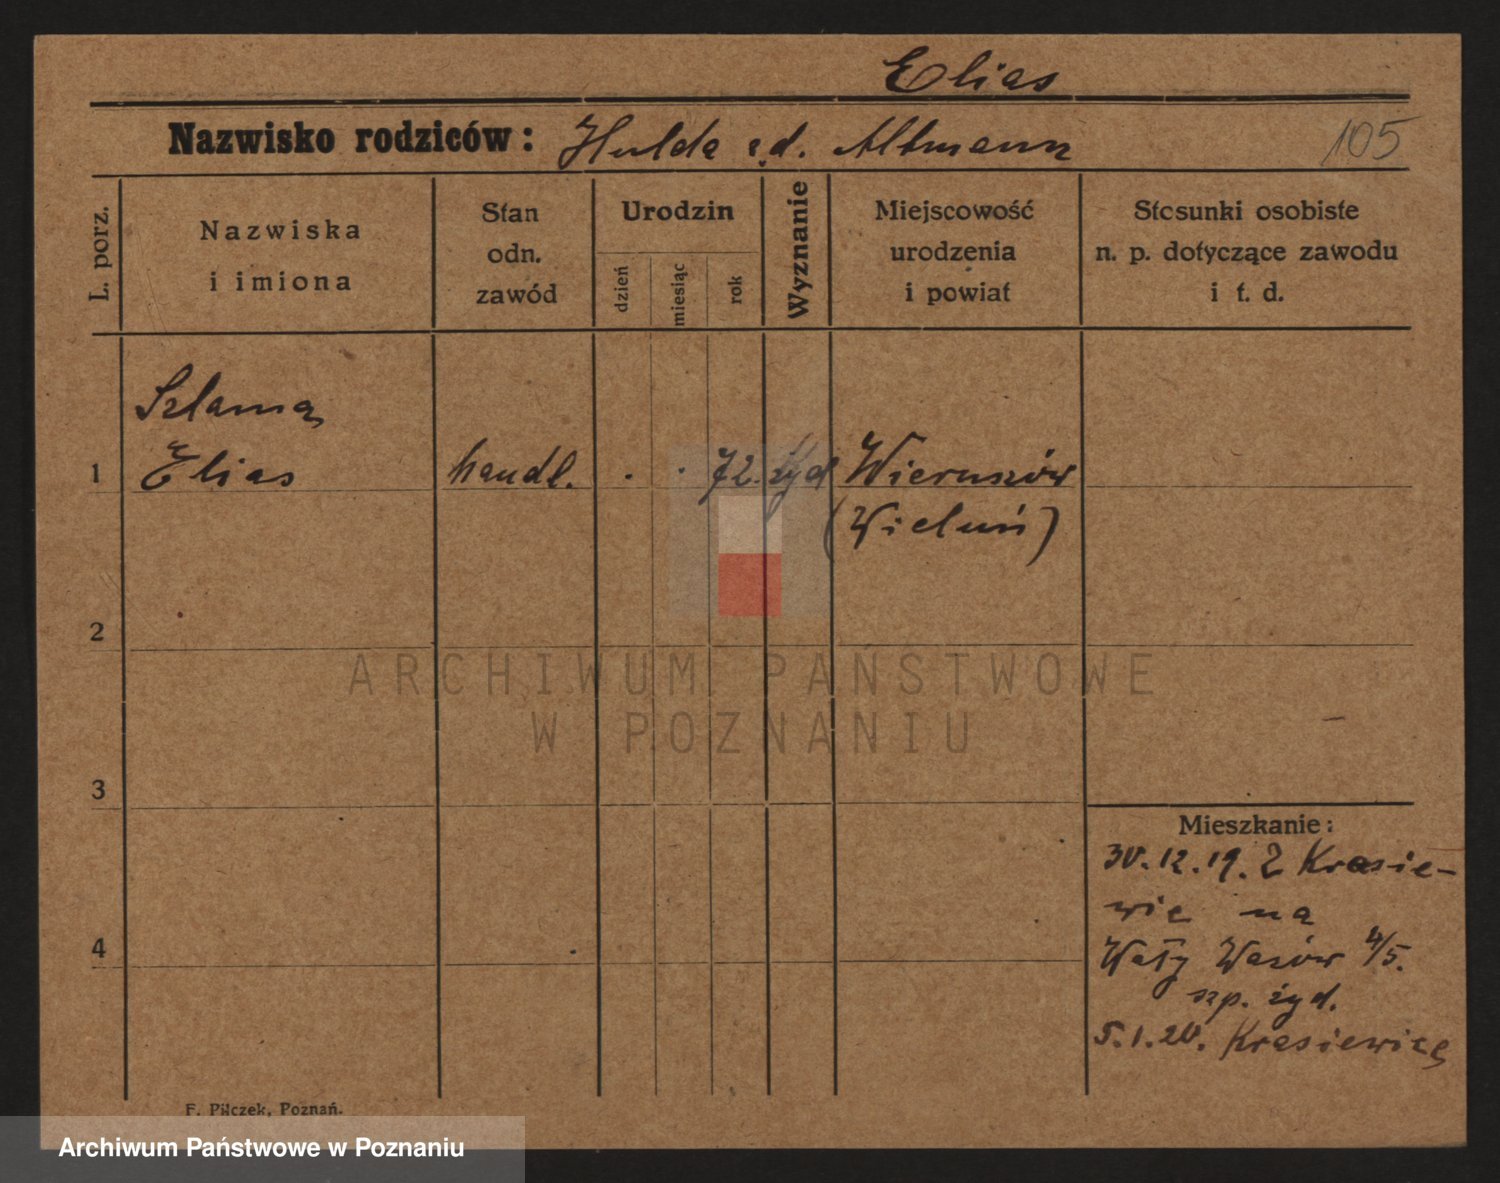 Elias
Nazwisko rodziców: Hulda z d. Altmann 105
L. porz.
Nazwiska
i imiona
Stan
odn.
zawód
Urodzin
dzień
miesiąc
rok
Wyznanie
Miejscowość
urodzenia
i powiat
Stosunki osobiste
n. p. dotyczące zawodu
i t. d.
Szlama
1 Elias handl. . . 72. żyd Wieruszów
(Wieluń)
2
ARCHIWUM PAŃSTWOWE
W POZNANIU
3
Mieszkanie:
30.12.19. Z Krasie-
wic na
Wały Wazów 4/5.
szp. żyd.
4
5.1.20. Krasiewice
F. Pilczek, Poznań.
Archiwum Państwowe w Poznaniu